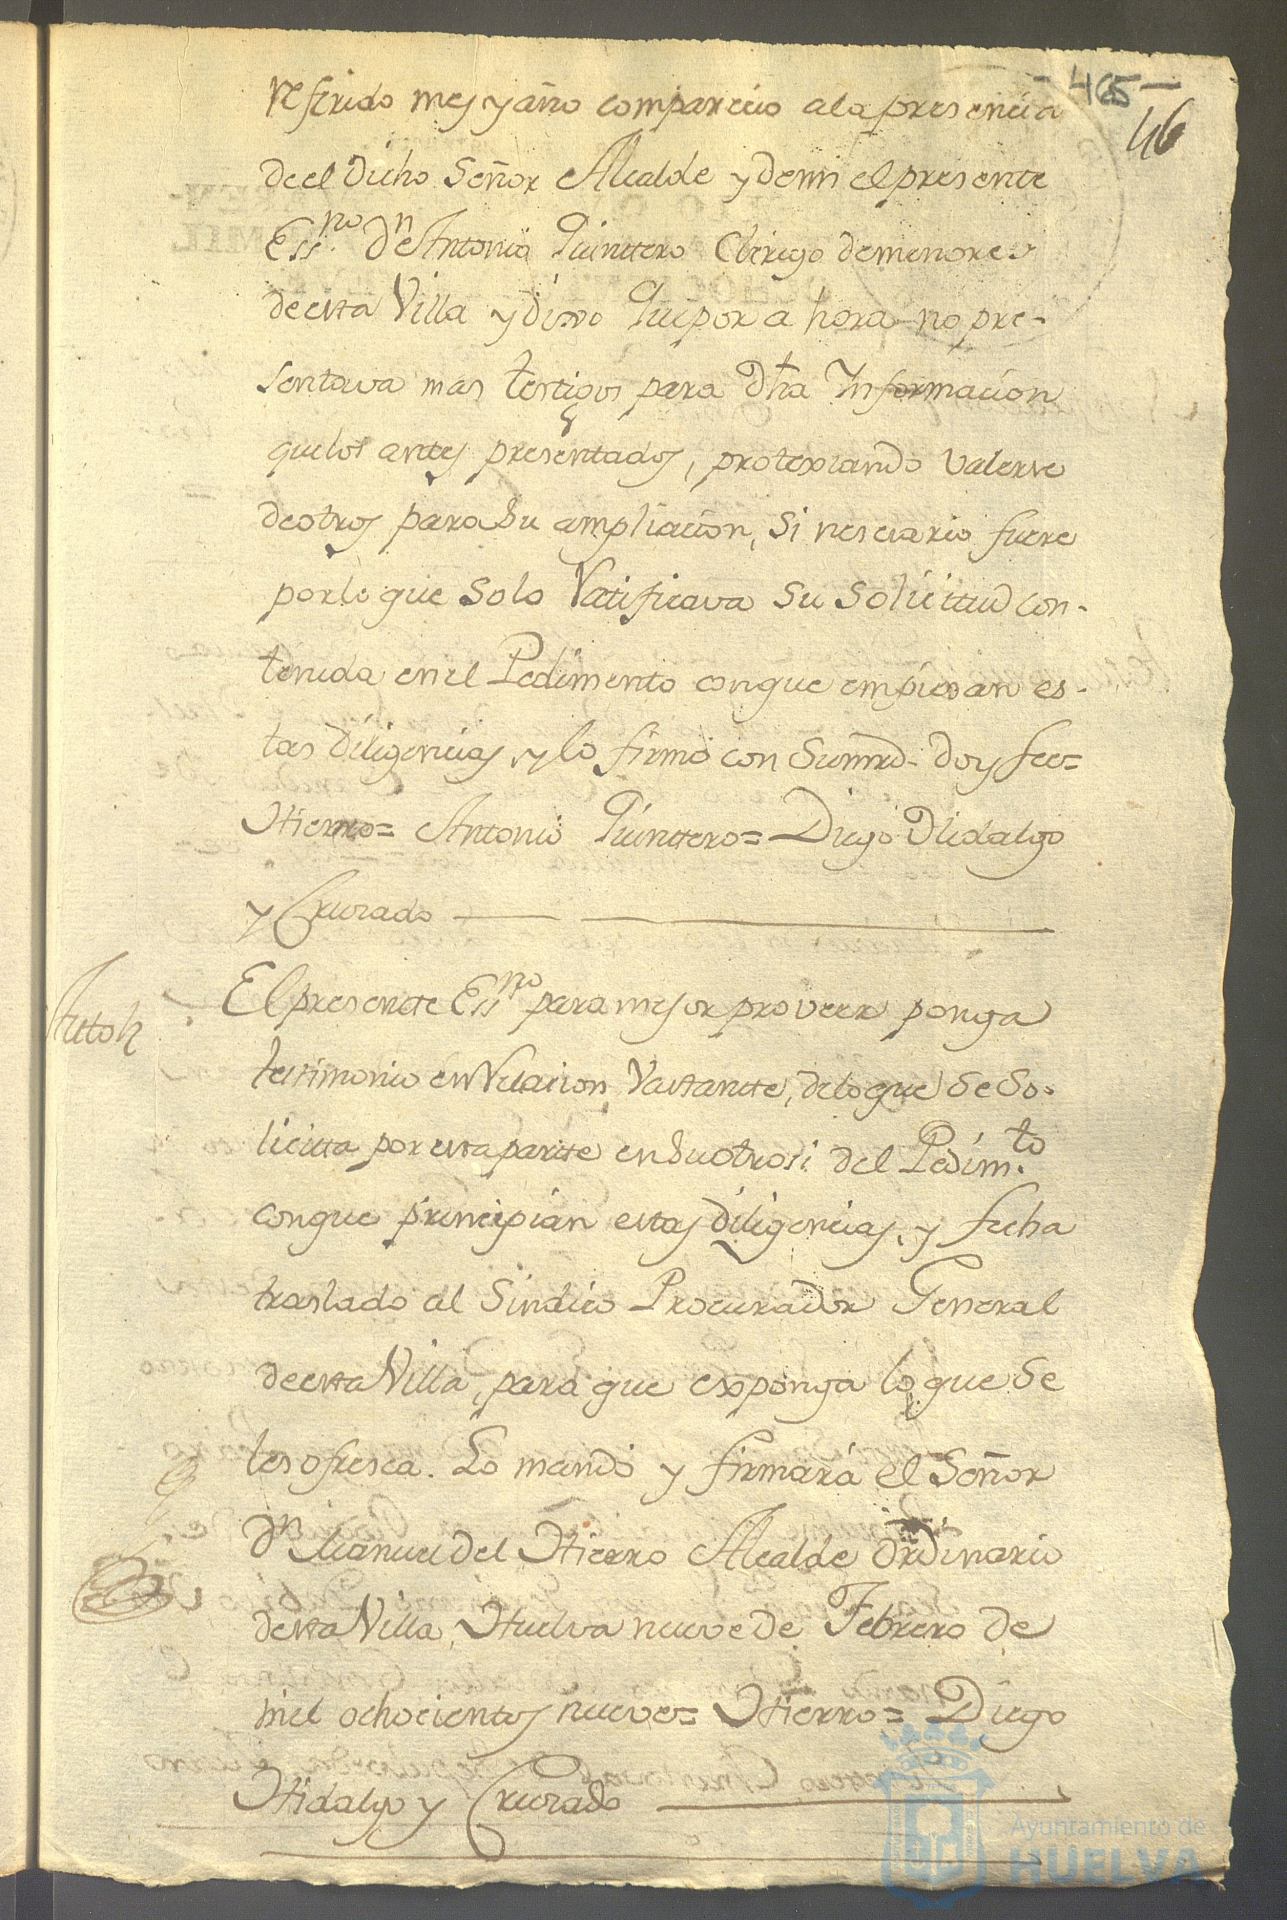 465
46
referido mes y año compareció a la presencia
de el Dicho Señor Alcalde y de mi el presente
Essno Dn Antonio Quinttero Clerigo de menores
de esta Villa y Dixo Que por a hora no pre-
sentava mas testigos para Dha Informacion
que los antes presentados, protextando valerse
de otros para su ampliacion, si nesesario fuere
por lo que solo Ratificava su solicitud con-
tenida en el Pedimento con que empiesan es-
tas Diligencias, y lo firmó con su mrd. doy fee=
Hierro= Antonio Quinttero= Diego Hidalgo
y Cruzado
Auto
El presente Essno para mejor proveer ponga
testimonio en Relacion Vastante, de lo que se so-
licitta por esta partte en su otrosi del Pedimto
con que principian estas Diligencias, y fecha
traslado al Sindico Procurador General
de esta Villa, para que exponga lo que se
les ofresca. Lo mandó y firmará el Señor
Dn Manuel Del Hierro Alcalde Ordinario
desta Villa, Huelva nueve de Febrero de
mil ochocientos nueve= Hierro= Diego
Hidalgo y Cruzado
Ayuntamiento de
HUELVA